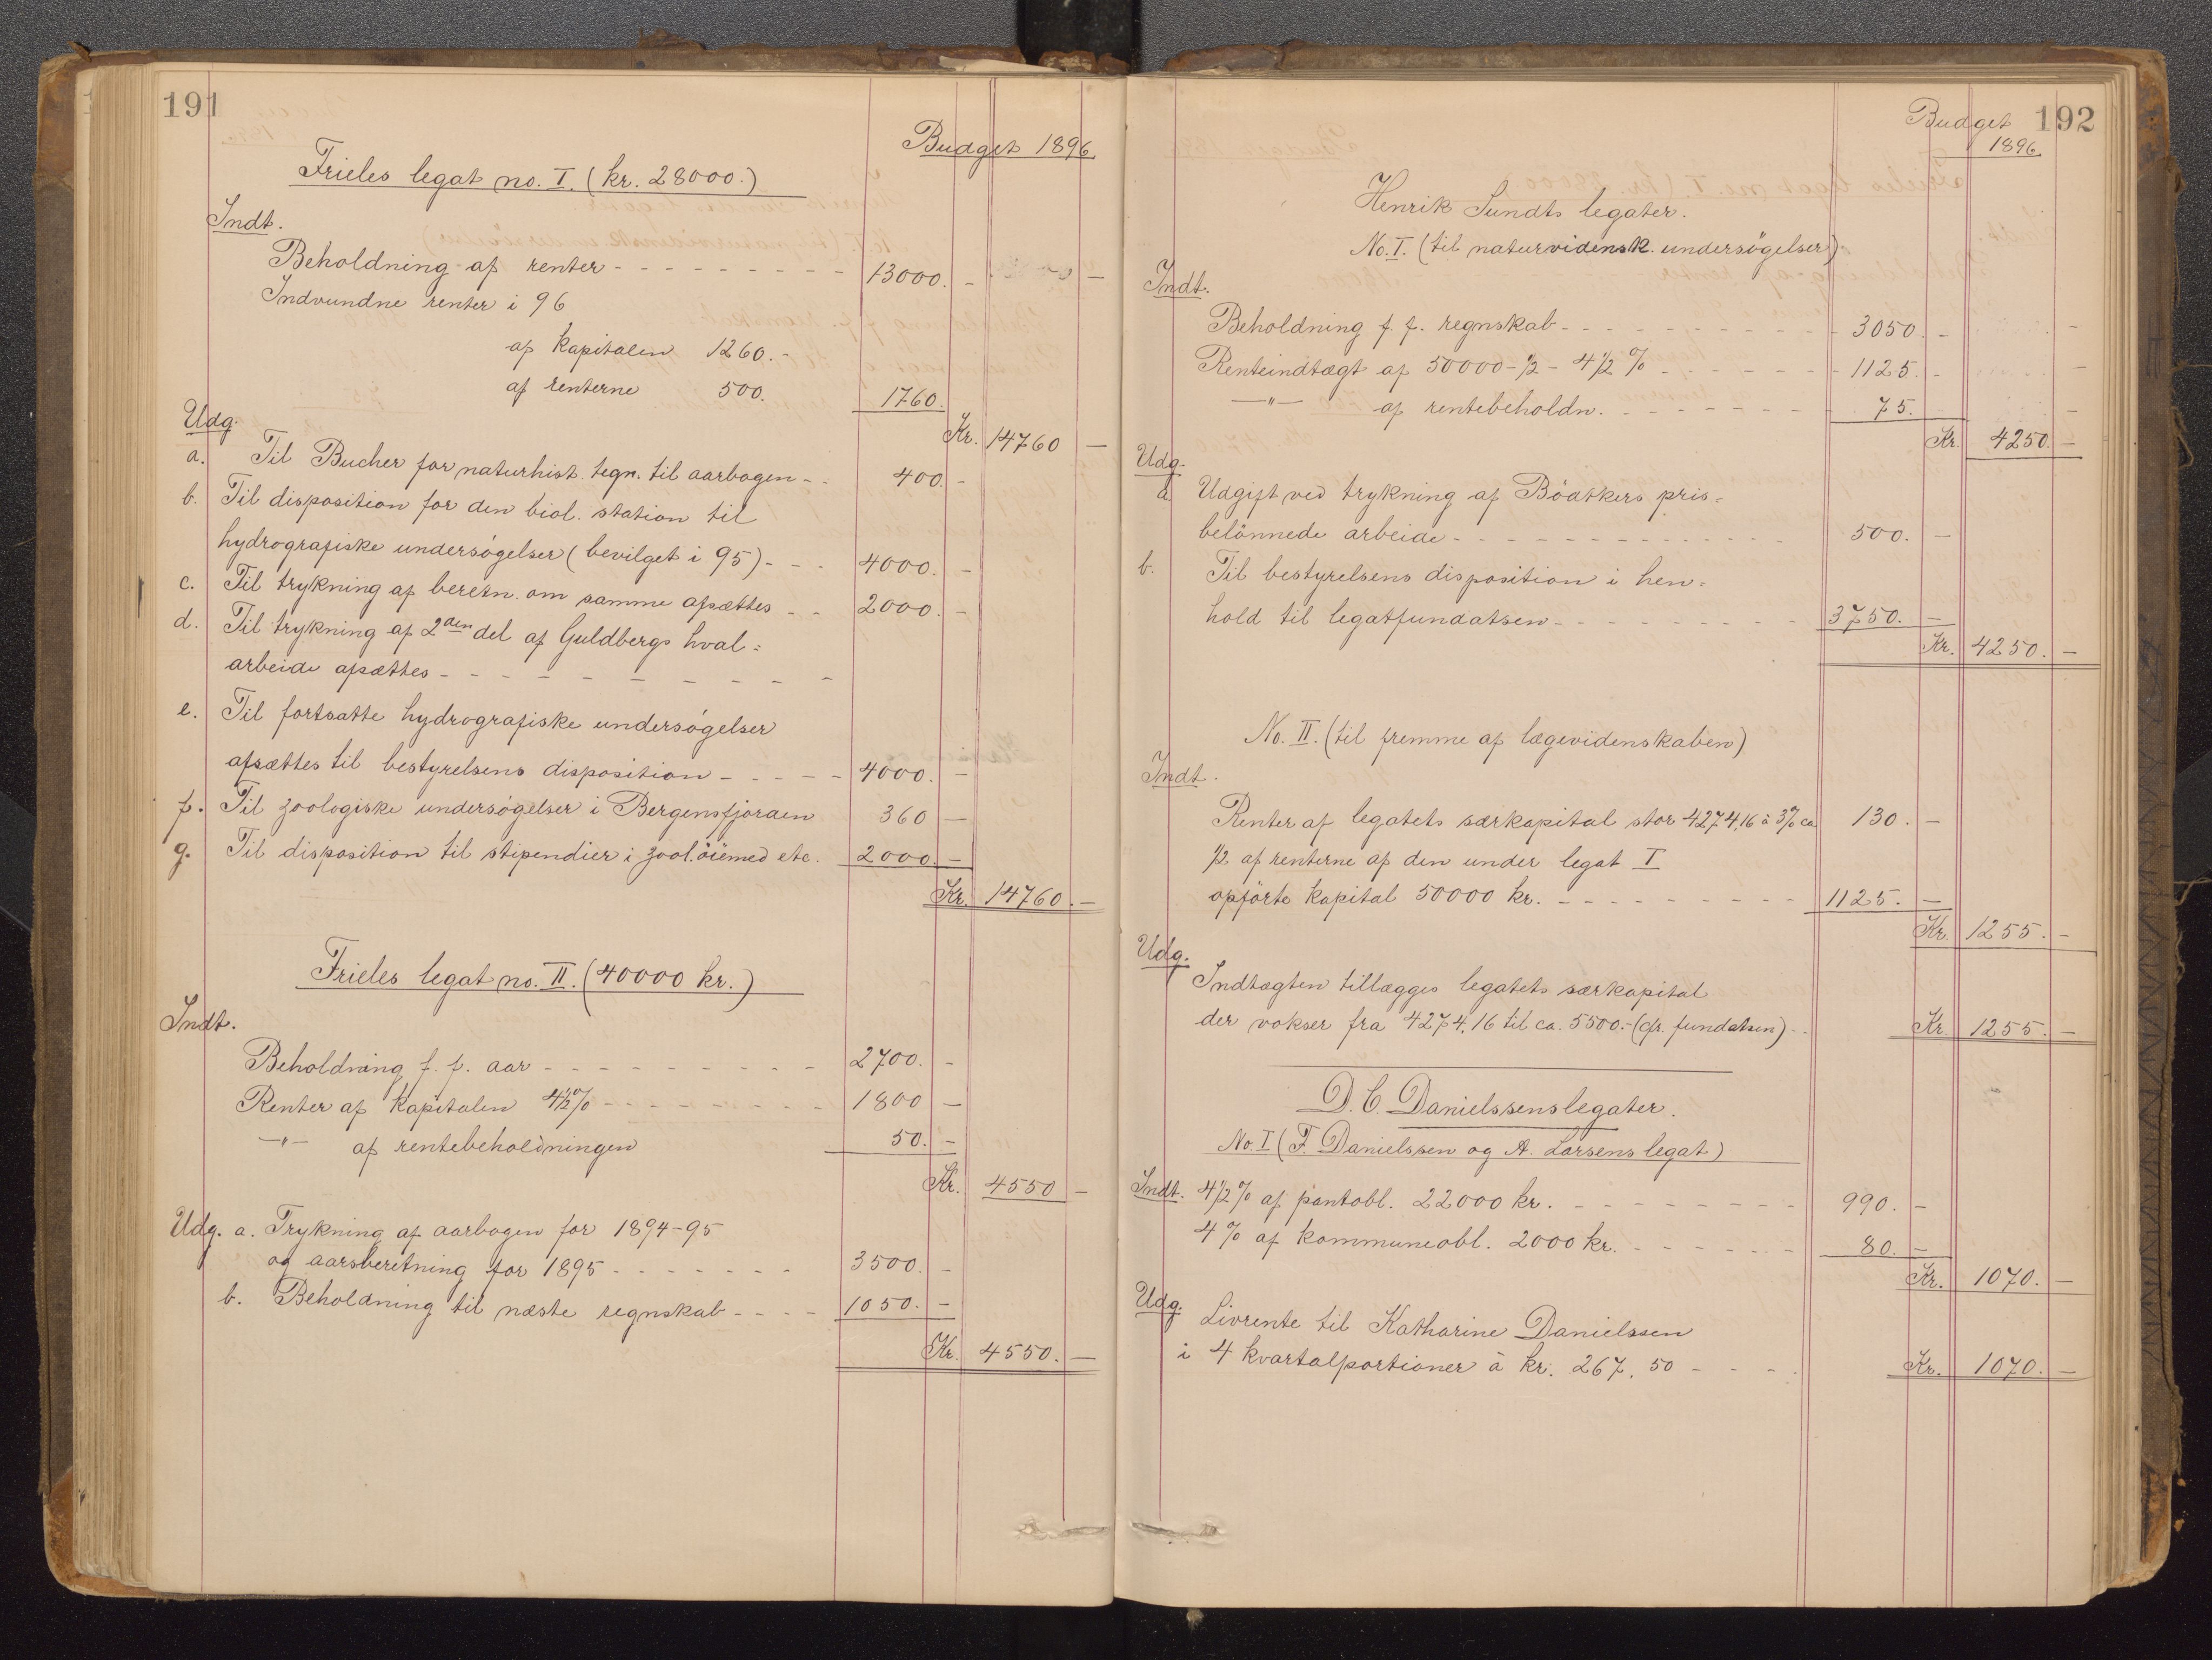 191
Budget 1896
Frieles legat no. I. (kr. 28000.)
Indt.
Beholdning af renter - - - - - - - - - 13000. -
Indvundne renter i 96
af kapitalen 1260. -
af renterne 500. 1760.
Kr. 14760 -
Udg.
a. Til Bucher for naturhist. tegn. til aarbogen - - 400. -
b. Til disposition for den biol. station til
hydrografiske undersøgelser (bevilget i 95) - - - 4000. -
c. Til trykning af beretn. om samme afsættes - - 2000. -
d. Til trykning af 2den del af Guldbergs hval=
arbeide afsættes - - - - - - - - - -
e. Til fortsatte hydrografiske undersøgelser
afsættes til bestyrelsens disposition - - - - - 4000. -
f. Til zoologiske undersøgelser i Bergensfjorden 360 -
g. Til disposition til stipendier i zool. öiemed etc. 2000. -
Kr. 14760. -
Frieles legat no. II. (40000 kr.)
Indt.
Beholdning f. f. aar - - - - - - - - - - 2700. -
Renter af kapitalen 4½% - - - - - - - - 1800 -
-"- af rentebeholdningen 50. -
Kr. 4550 -
Udg. a. Trykning af aarbogen for 1894-95
og aarsberetning for 1895 - - - - - - - 3500. -
b. Beholdning til næste regnskab - - - - 1050. -
Kr. 4550. -
192
Budget
1896
Henrik Sundts legater.
No. I. (til naturvidensk. undersögelser)
Indt.
Beholdning f. f. regnskab - - - - - - - - - - - 3050. -
Renteindtægt af 50000 - ½ - 4½ % - - - - - - - 1125. -
-"- af rentebeholdn. - - - - - - - - 75.
Kr. 4250. -
Udg.
a. Udgift ved trykning af Böatkers pris=
belönnede arbeide - - - - - - - - - - - - - 500. -
b. Til bestyrelsens disposition i hen=
hold til legatfundatsen - - - - - - - - - - 3750. -
Kr. 4250. -
No. II. (til fremme af lægevidenskaben)
Indt.
Renter af legatets særkapital stor 4274,16 à 3% ca 130. -
½ af renterne af den under legat I
opförte kapital 50000 kr. - - - - - - - - - 1125. -
Kr. 1255. -
Udg.
Indtægten tillægges legatets særkapital
der vokser fra 4274,16 til ca. 5500.- (cfr. fundatsen) - - Kr. 1255. -
D. C. Danielssens legater.
No. I (F. Danielssen og A. Larsens legat)
Indt. 4½ % af pantobl. 22000 kr. - - - - - - - - 990. -
4 % af kommuneobl. 2000 kr. - - - - - - - 80. -
Kr. 1070. -
Udg. Livrente til Katharine Danielssen
i 4 kvartalportioner à kr. 267,50 - - - - Kr. 1070. -